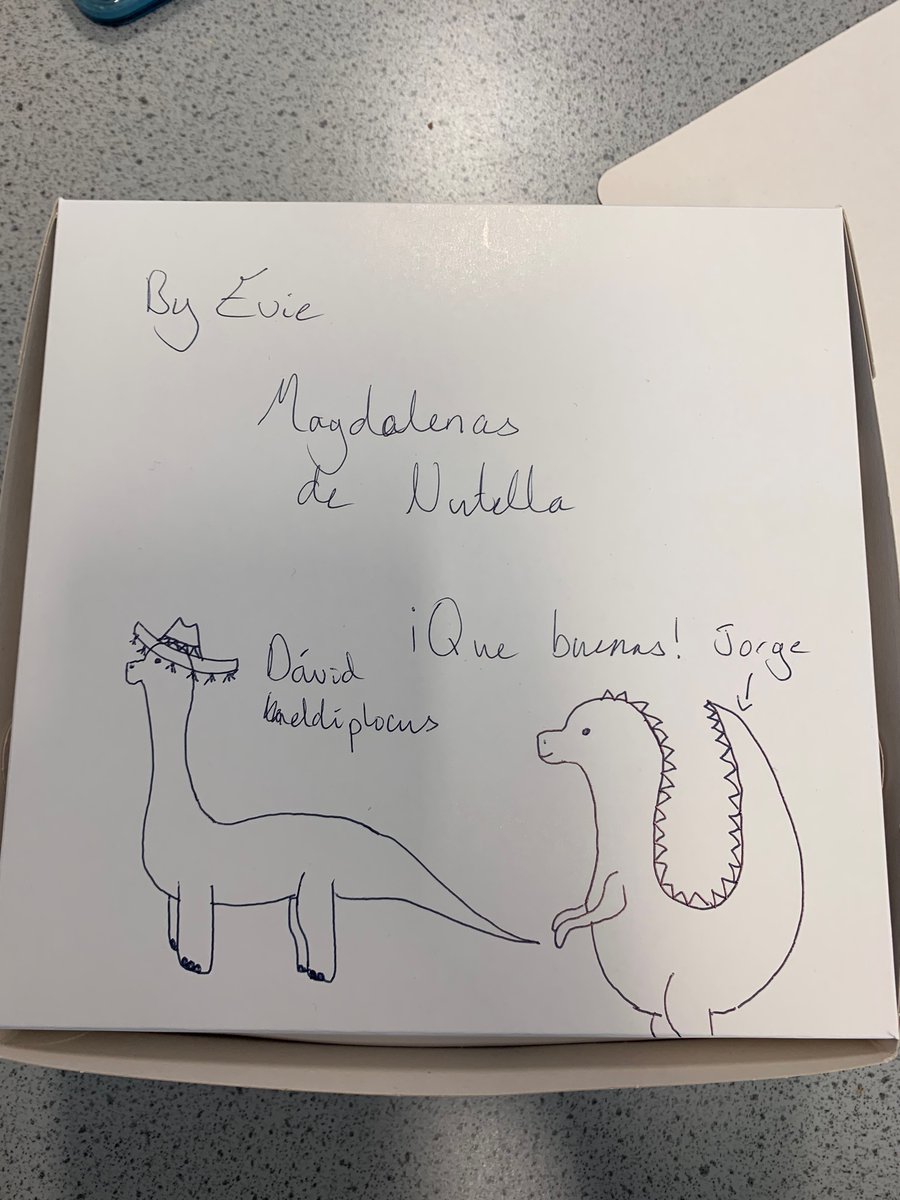 By Évie
Magdalenas
de Nutella
¡Que buenas!
Jorge
Dávid
eldiplocus